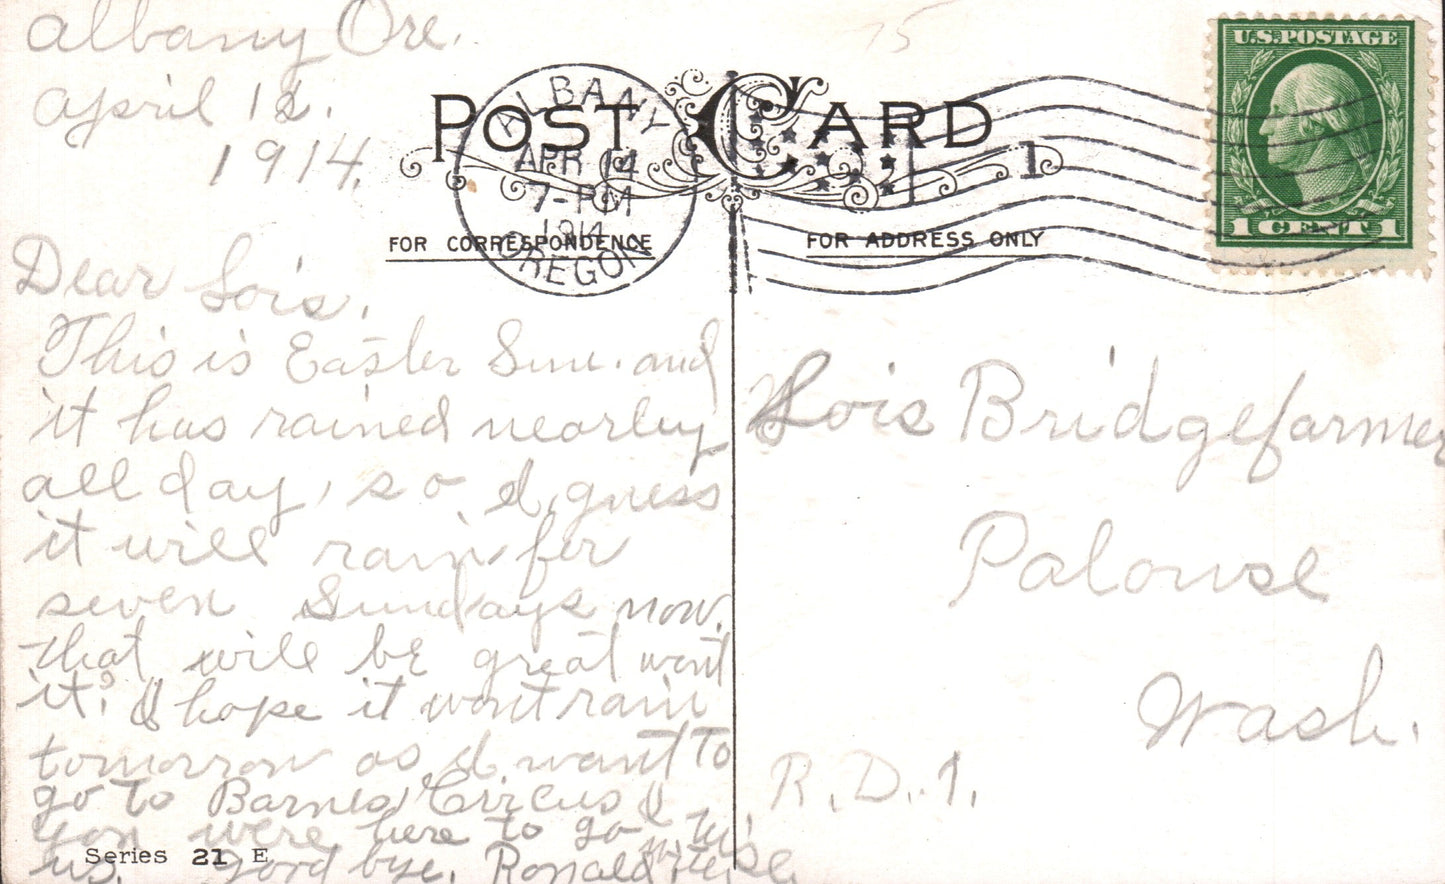 Albany Ore.
April 12.
1914.
POST CARD
ALBANY
APR 14
7-PM
1914
OREGON
1
U.S. POSTAGE
1 CENT 1
FOR CORRESPONDENCE
FOR ADDRESS ONLY
Dear Lois.
This is Easter Sun. and
it has rained nearly
all day, so I guess
it will rain for
seven Sundays now.
that will be great wont
it? I hope it wont rain
tomorrow as I want to
go to Barnes Circus I
you were here to go with
us. good bye. Ronald
Series 21 E
Lois Bridgefarmer
Palouse
Wash.
R.D.1.